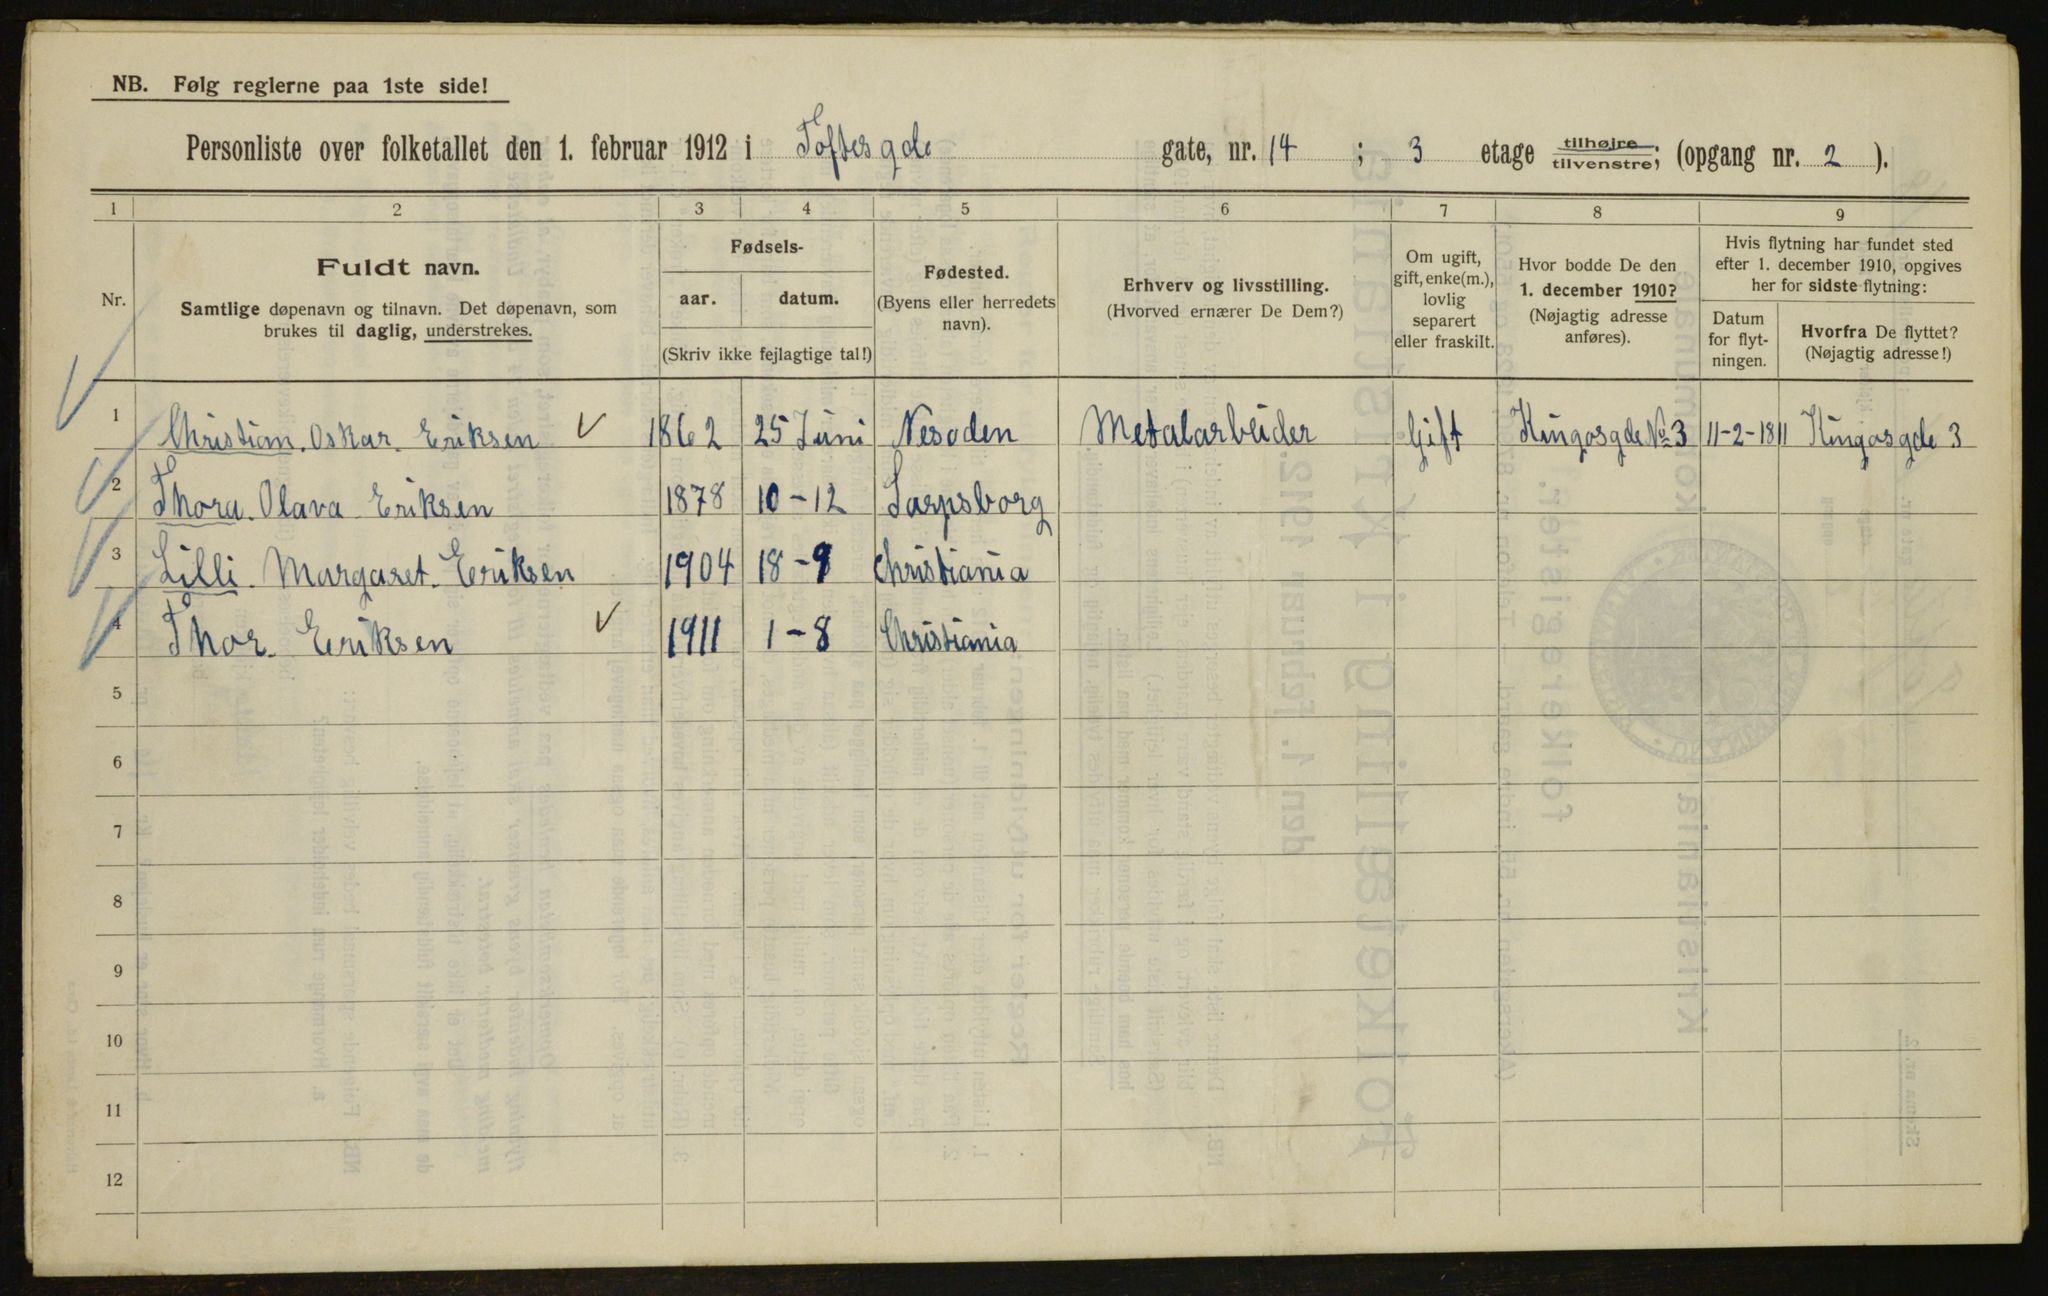 NB. Følg reglerne paa 1ste side!
Personliste over folketallet den 1. februar 1912 i Toftesgde gate, nr. 14 ; 3 etage tilhøire, tilvenstre, (opgang nr. 2 ).
1 2 3 4 5 6 7 8 9
Nr.
Fuldt navn.
Samtlige døpenavn og tilnavn. Det døpenavn, som
brukes til daglig, understrekes.
Fødsels-
aar. datum.
(Skriv ikke fejlagtige tal!)
Fødested.
(Byens eller herredets
navn).
Erhverv og livsstilling.
(Hvorved ernærer De Dem?)
Om ugift,
gift, enke(m.),
lovlig
separert
eller fraskilt.
Hvor bodde De den
1. december 1910?
(Nøjagtig adresse
anføres).
Hvis flytning har fundet sted
efter 1. december 1910, opgives
her for sidste flytning:
Datum
for flyt-
ningen.
Hvorfra De flyttet?
(Nøjagtig adresse!)
1 Christian. Oskar. Eriksen 1862 25 Juni Nesoden Metalarbeider Gift Kingosgde No 3 11-2-1811 Kingosgde 3
2 Thora. Olava Eriksen 1878 10-12 Sarpsborg
3 Lilli. Margaret. Eriksen 1904 18-9 Christiania
4 Thor. Eriksen 1911 1-8 Christiania
5
6
7
8
9
10
11
12